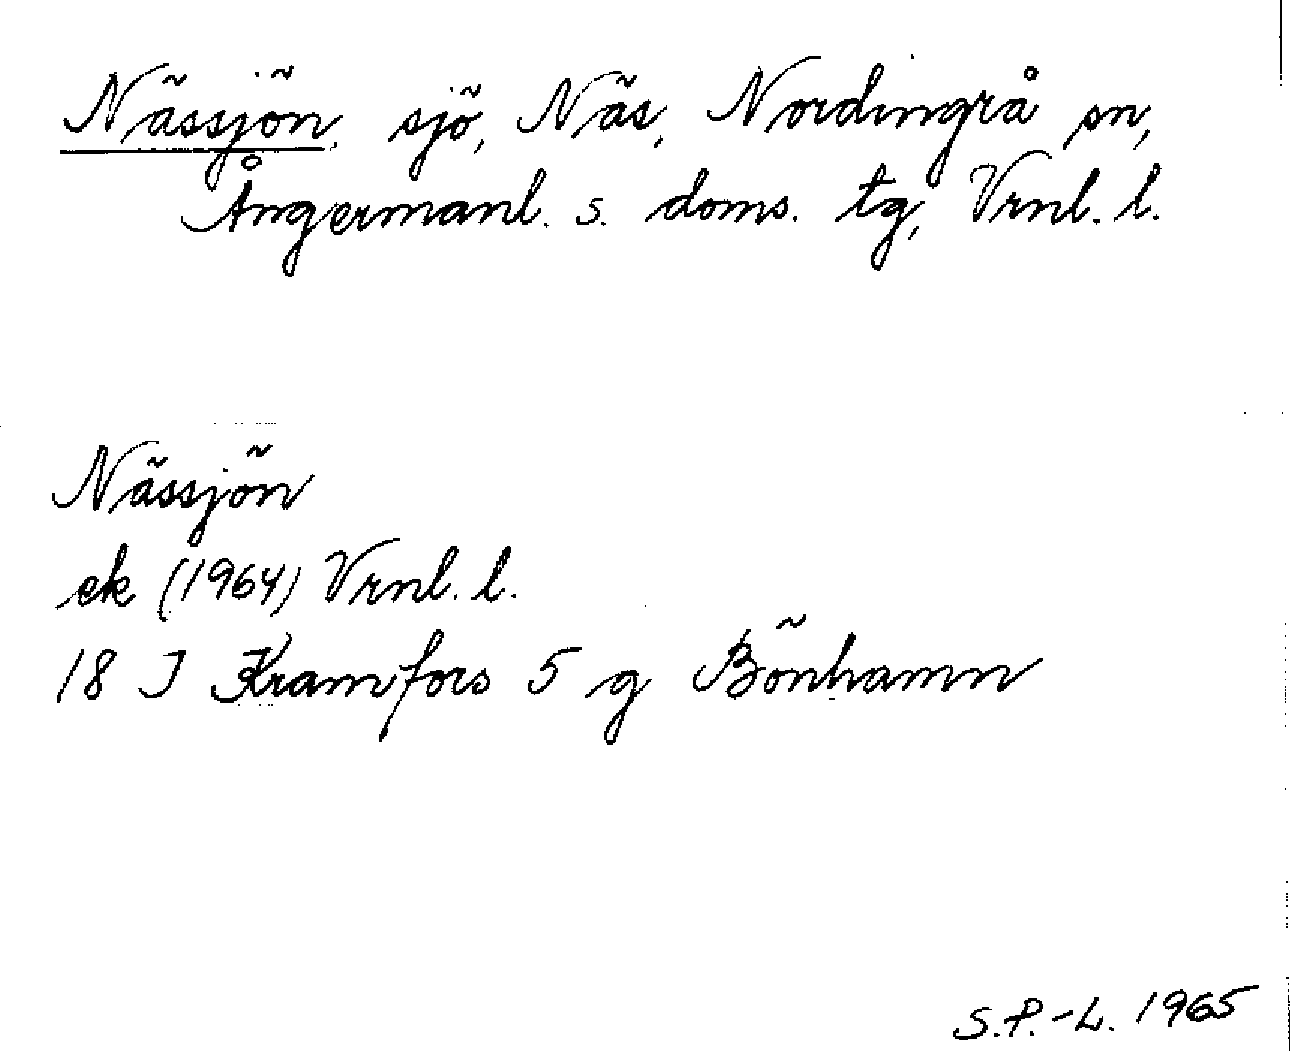 Nässjön, sjö, Näs, Nordingrå sn,
Ångermanl. s. doms. tg, Vrnl. l.
Nässjön
ek (1964) Vrnl. l.
18 J Kramfors 5 g Bönhamn
S.P.-L. 1965